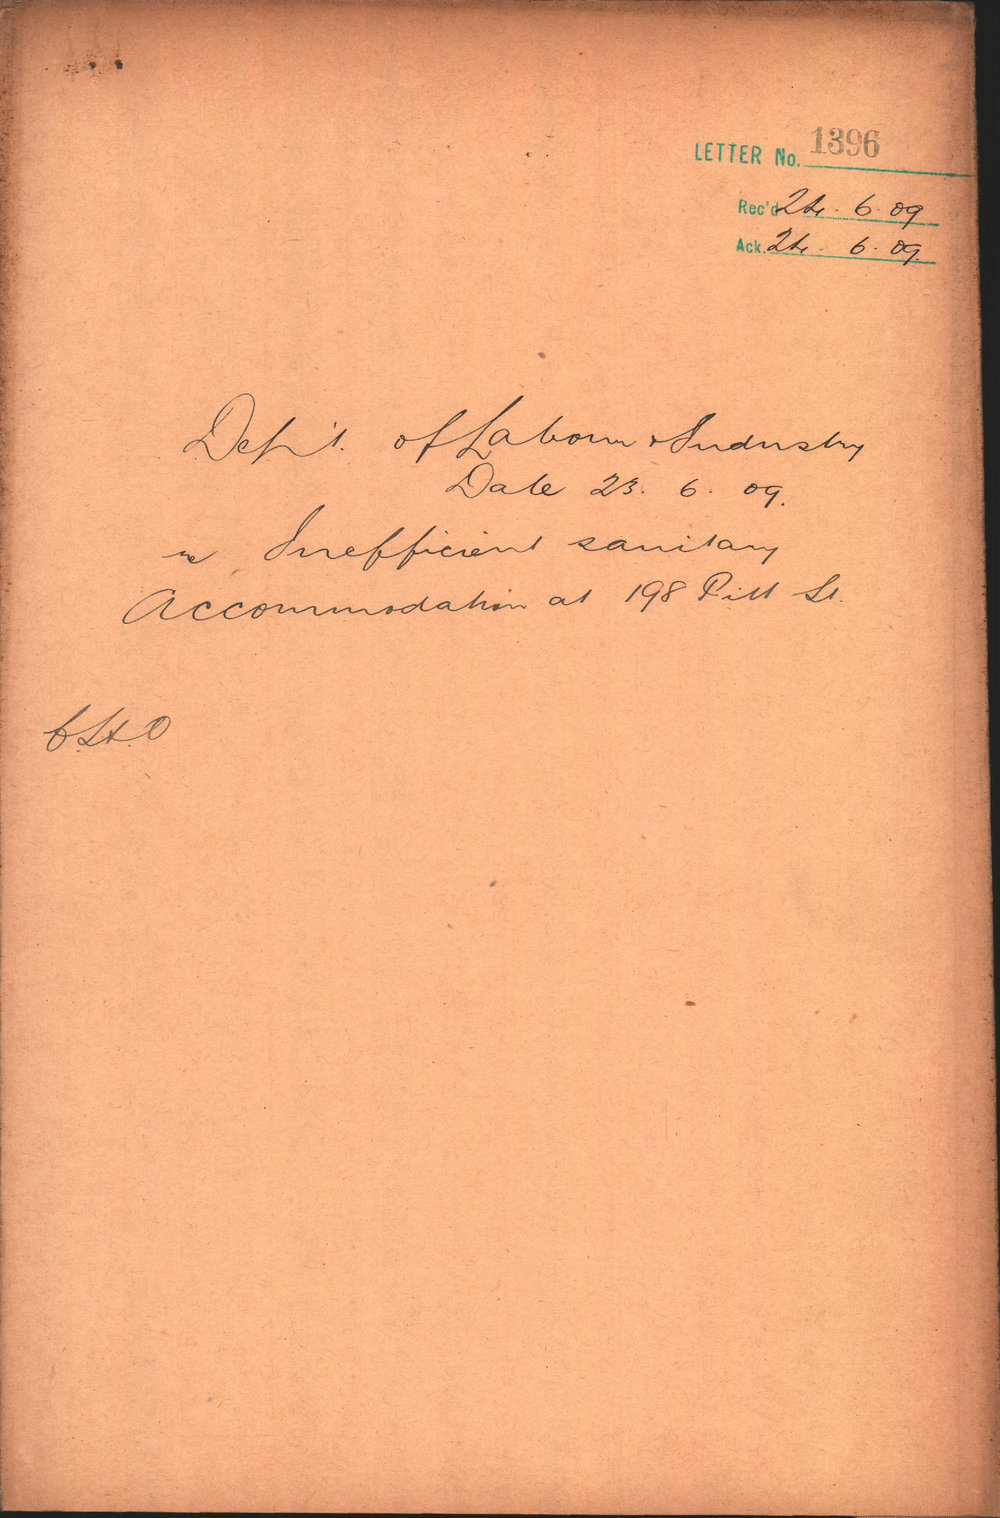 LETTER No. 1396
Rec'd 24. 6. 09
Ack. 24. 6. 09.
Dep't. of Labour & Industry
Date 23. 6. 09.
re Inefficient sanitary
Accommodation at 198 Pitt St.
C.H.O